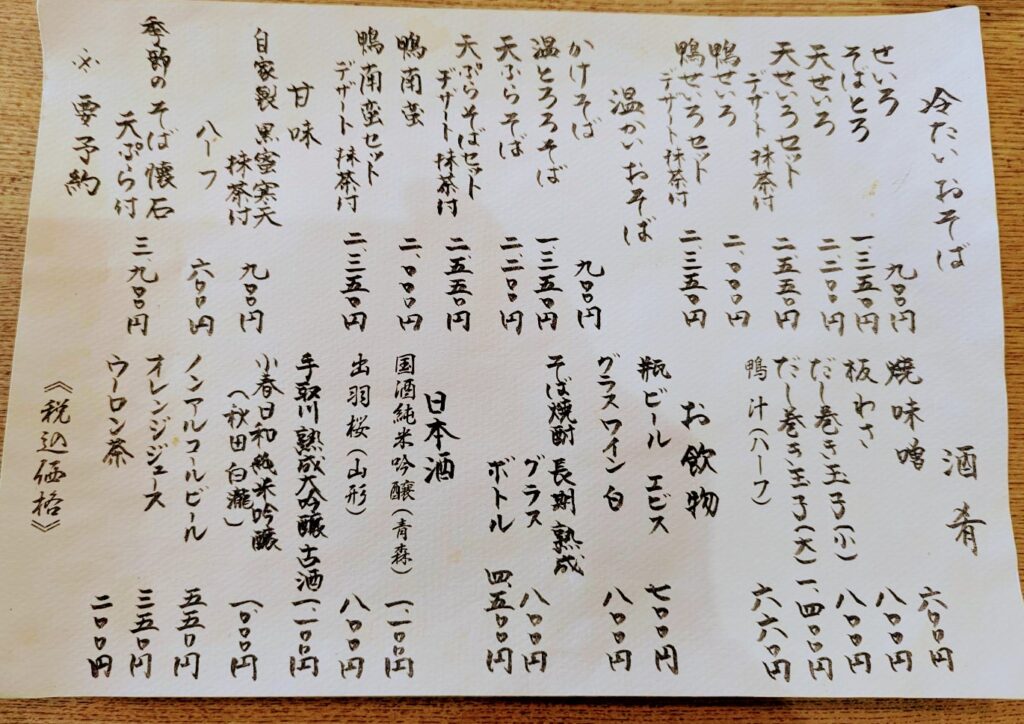 冷たいおそば
せいろ 九〇〇円
そばとろ 一、三五〇円
天せいろ 二、二〇〇円
天せいろセット 二、五五〇円
デザート 抹茶付
鴨せいろ 二、〇〇〇円
鴨せいろセット 二、三五〇円
デザート 抹茶付
温かいおそば
かけそば 九〇〇円
温とろろそば 一、三五〇円
天ぷらそば 二、二〇〇円
天ぷらそばセット 二、五五〇円
デザート 抹茶付
鴨南蛮 二、〇〇〇円
鴨南蛮セット 二、三五〇円
デザート 抹茶付
甘味
自家製 黒蜜寒天
抹茶付 九〇〇円
ハーフ 六〇〇円
季節の そば懐石
天ぷら付 三、九〇〇円
※ 要予約
酒肴
焼味噌 六〇〇円
板わさ 八〇〇円
だし巻き玉子(小) 八〇〇円
だし巻き玉子(大) 一、四〇〇円
鴨汁(ハーフ) 六六〇円
お飲物
瓶ビール エビス 七〇〇円
グラスワイン 白 八〇〇円
そば焼酎 長期熟成
グラス 八〇〇円
ボトル 四、五〇〇円
日本酒
国酒純米吟醸(青森) 一、一〇〇円
出羽桜(山形) 八〇〇円
手取川 熟成大吟醸古酒 一、一〇〇円
小春日和純米吟醸
(秋田 白瀧) 一、〇〇〇円
ノンアルコールビール 五五〇円
オレンジジュース 三五〇円
ウーロン茶 二〇〇円
《税込価格》